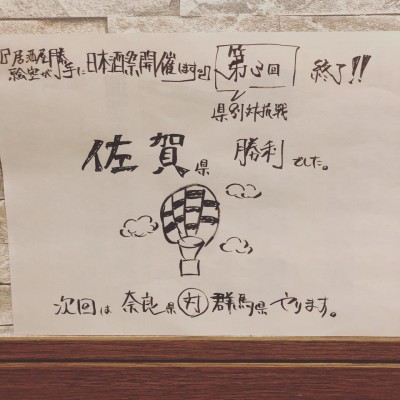 『居酒屋 勝手に日本酒祭開催します』 第3回 終了!!
絵空が
県別対抗戦
佐賀県 勝利でした。
次回は 奈良県 対 群馬県 やります。